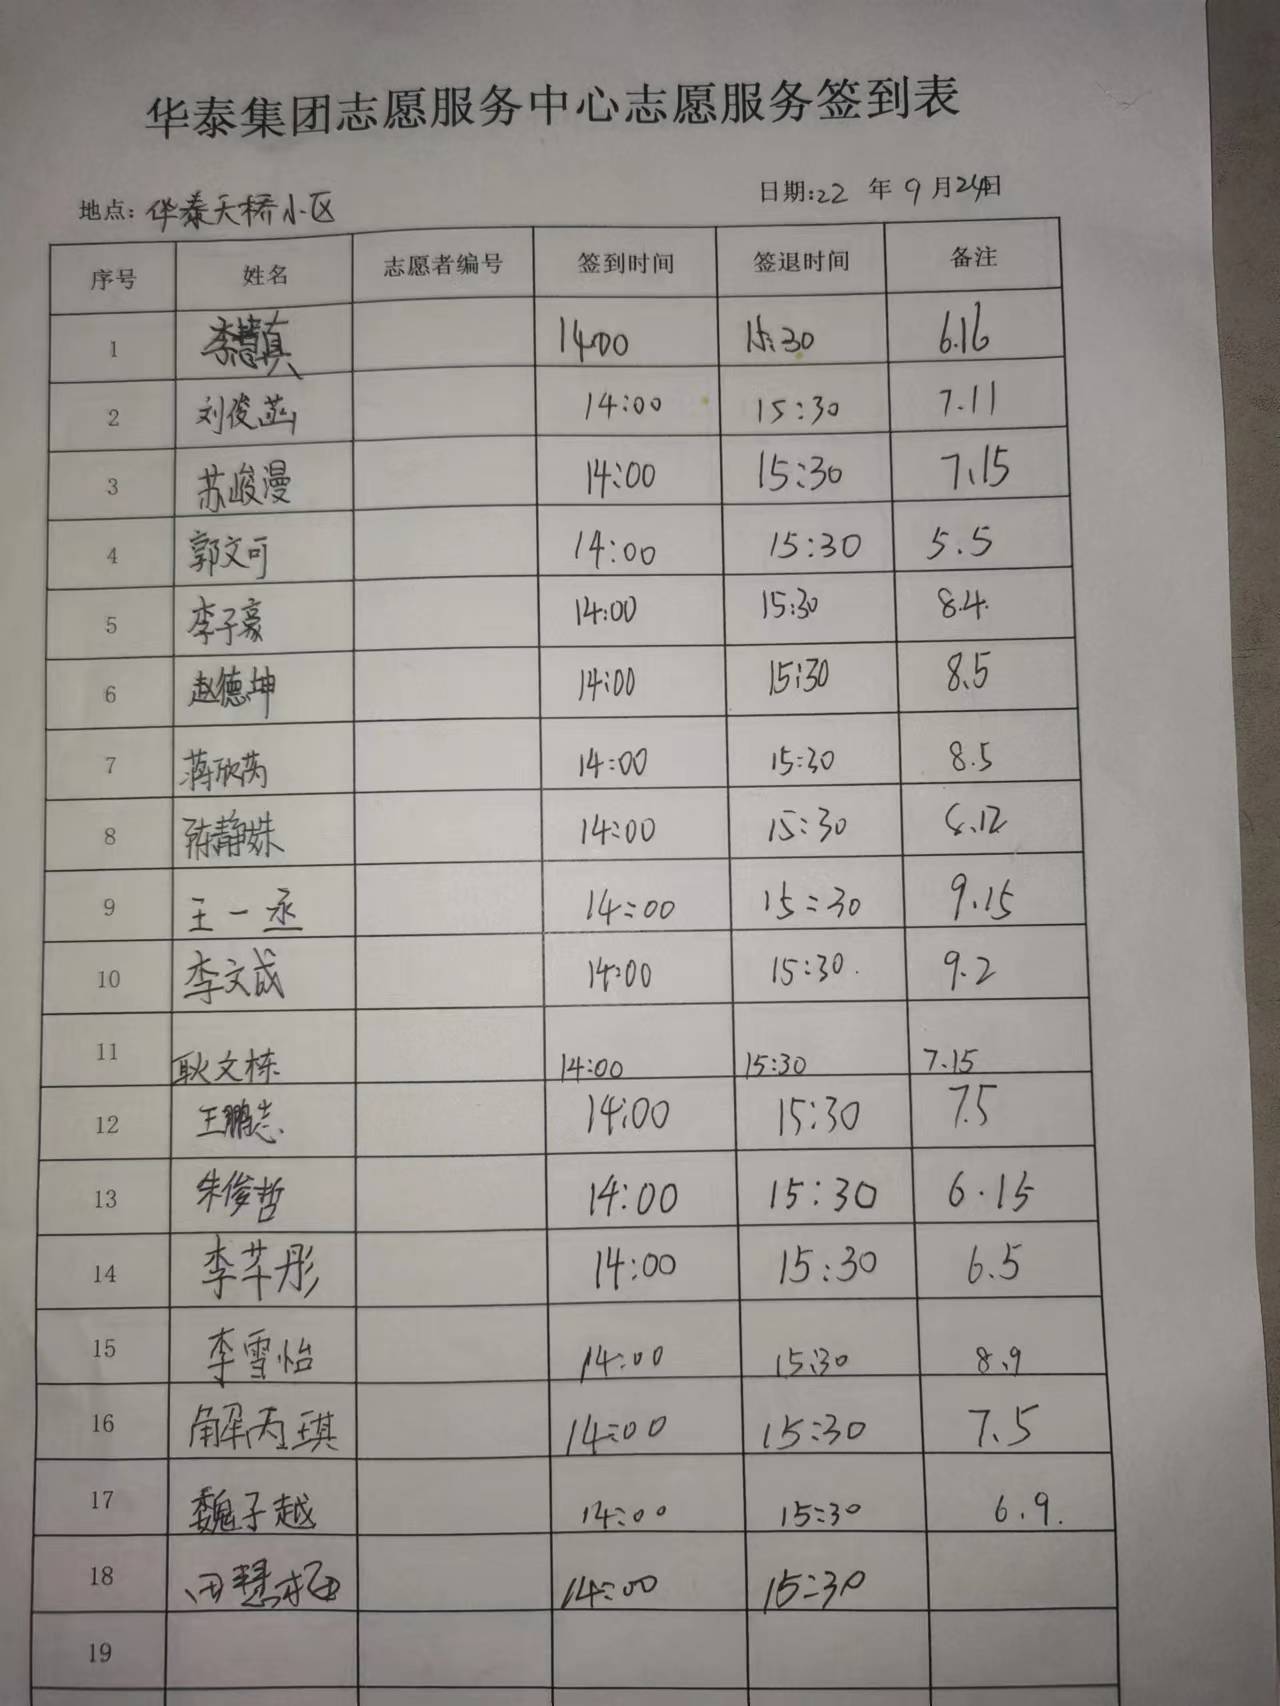 华泰集团志愿服务中心志愿服务签到表
地点：华泰天桥小区 日期：22 年 9 月 24日
序号 姓名 志愿者编号 签到时间 签退时间 备注
1 李慧真 14:00 15:30 6.16
2 刘俊菡 14:00 15:30 7.11
3 苏峻漫 14:00 15:30 7.15
4 郭文可 14:00 15:30 5.5
5 李子豪 14:00 15:30 8.4.
6 赵德坤 14:00 15:30 8.5
7 蒋欣芮 14:00 15:30 8.5
8 陈静姝 14:00 15:30 .12
9 王一丞 14:00 15:30 9.15
10 李文成 14:00 15:30. 9.2
11 耿文栋 14:00 15:30 7.15
12 王鹏志 14:00 15:30 7.5
13 朱俊哲 14:00 15:30 6.15
14 李芊彤 14:00 15:30 6.5
15 李雪怡 14:00 15:30 8.9
16 解丙琪 14:00 15:30 7.5
17 魏子越 14:00 15:30 6.9.
18 田慧 14:00 15:30
19